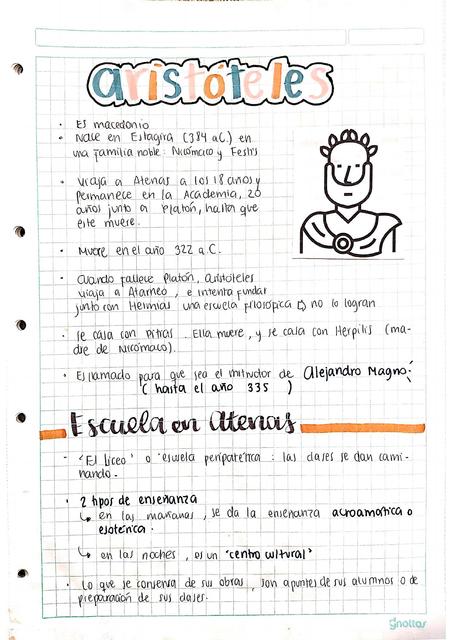 aristóteles
· Es macedonio
· Nace en Estagira (384 a.C.) en
una familia noble: Nicómaco y Festis
· Viaja a Atenas a los 18 años y
permanece en la Academia, 20
años junto a Platón, hasta que
este muere.
· Muere en el año 322 a.C.
· Cuando fallece Platón, Aristóteles
viaja a Atarneo, e intenta fundar
junto con Hermias una escuela filosófica ⇨ no lo logran
· Se casa con Pitias. Ella muere, y se casa con Herpilis (ma-
dre de Nicómaco).
· Es llamado para que sea el instructor de Alejandro Magno:
( hasta el año 335 )
Escuela en Atenas
· "El Liceo" o "escuela peripatética": las clases se dan cami-
nando.
· 2 tipos de enseñanza
↳ en las mañanas, se da la enseñanza acroamática o
esotérica.
↳ en las noches, es un "centro cultural"
· Lo que se conserva de sus obras, son apuntes de sus alumnos o de
preparación de sus clases.